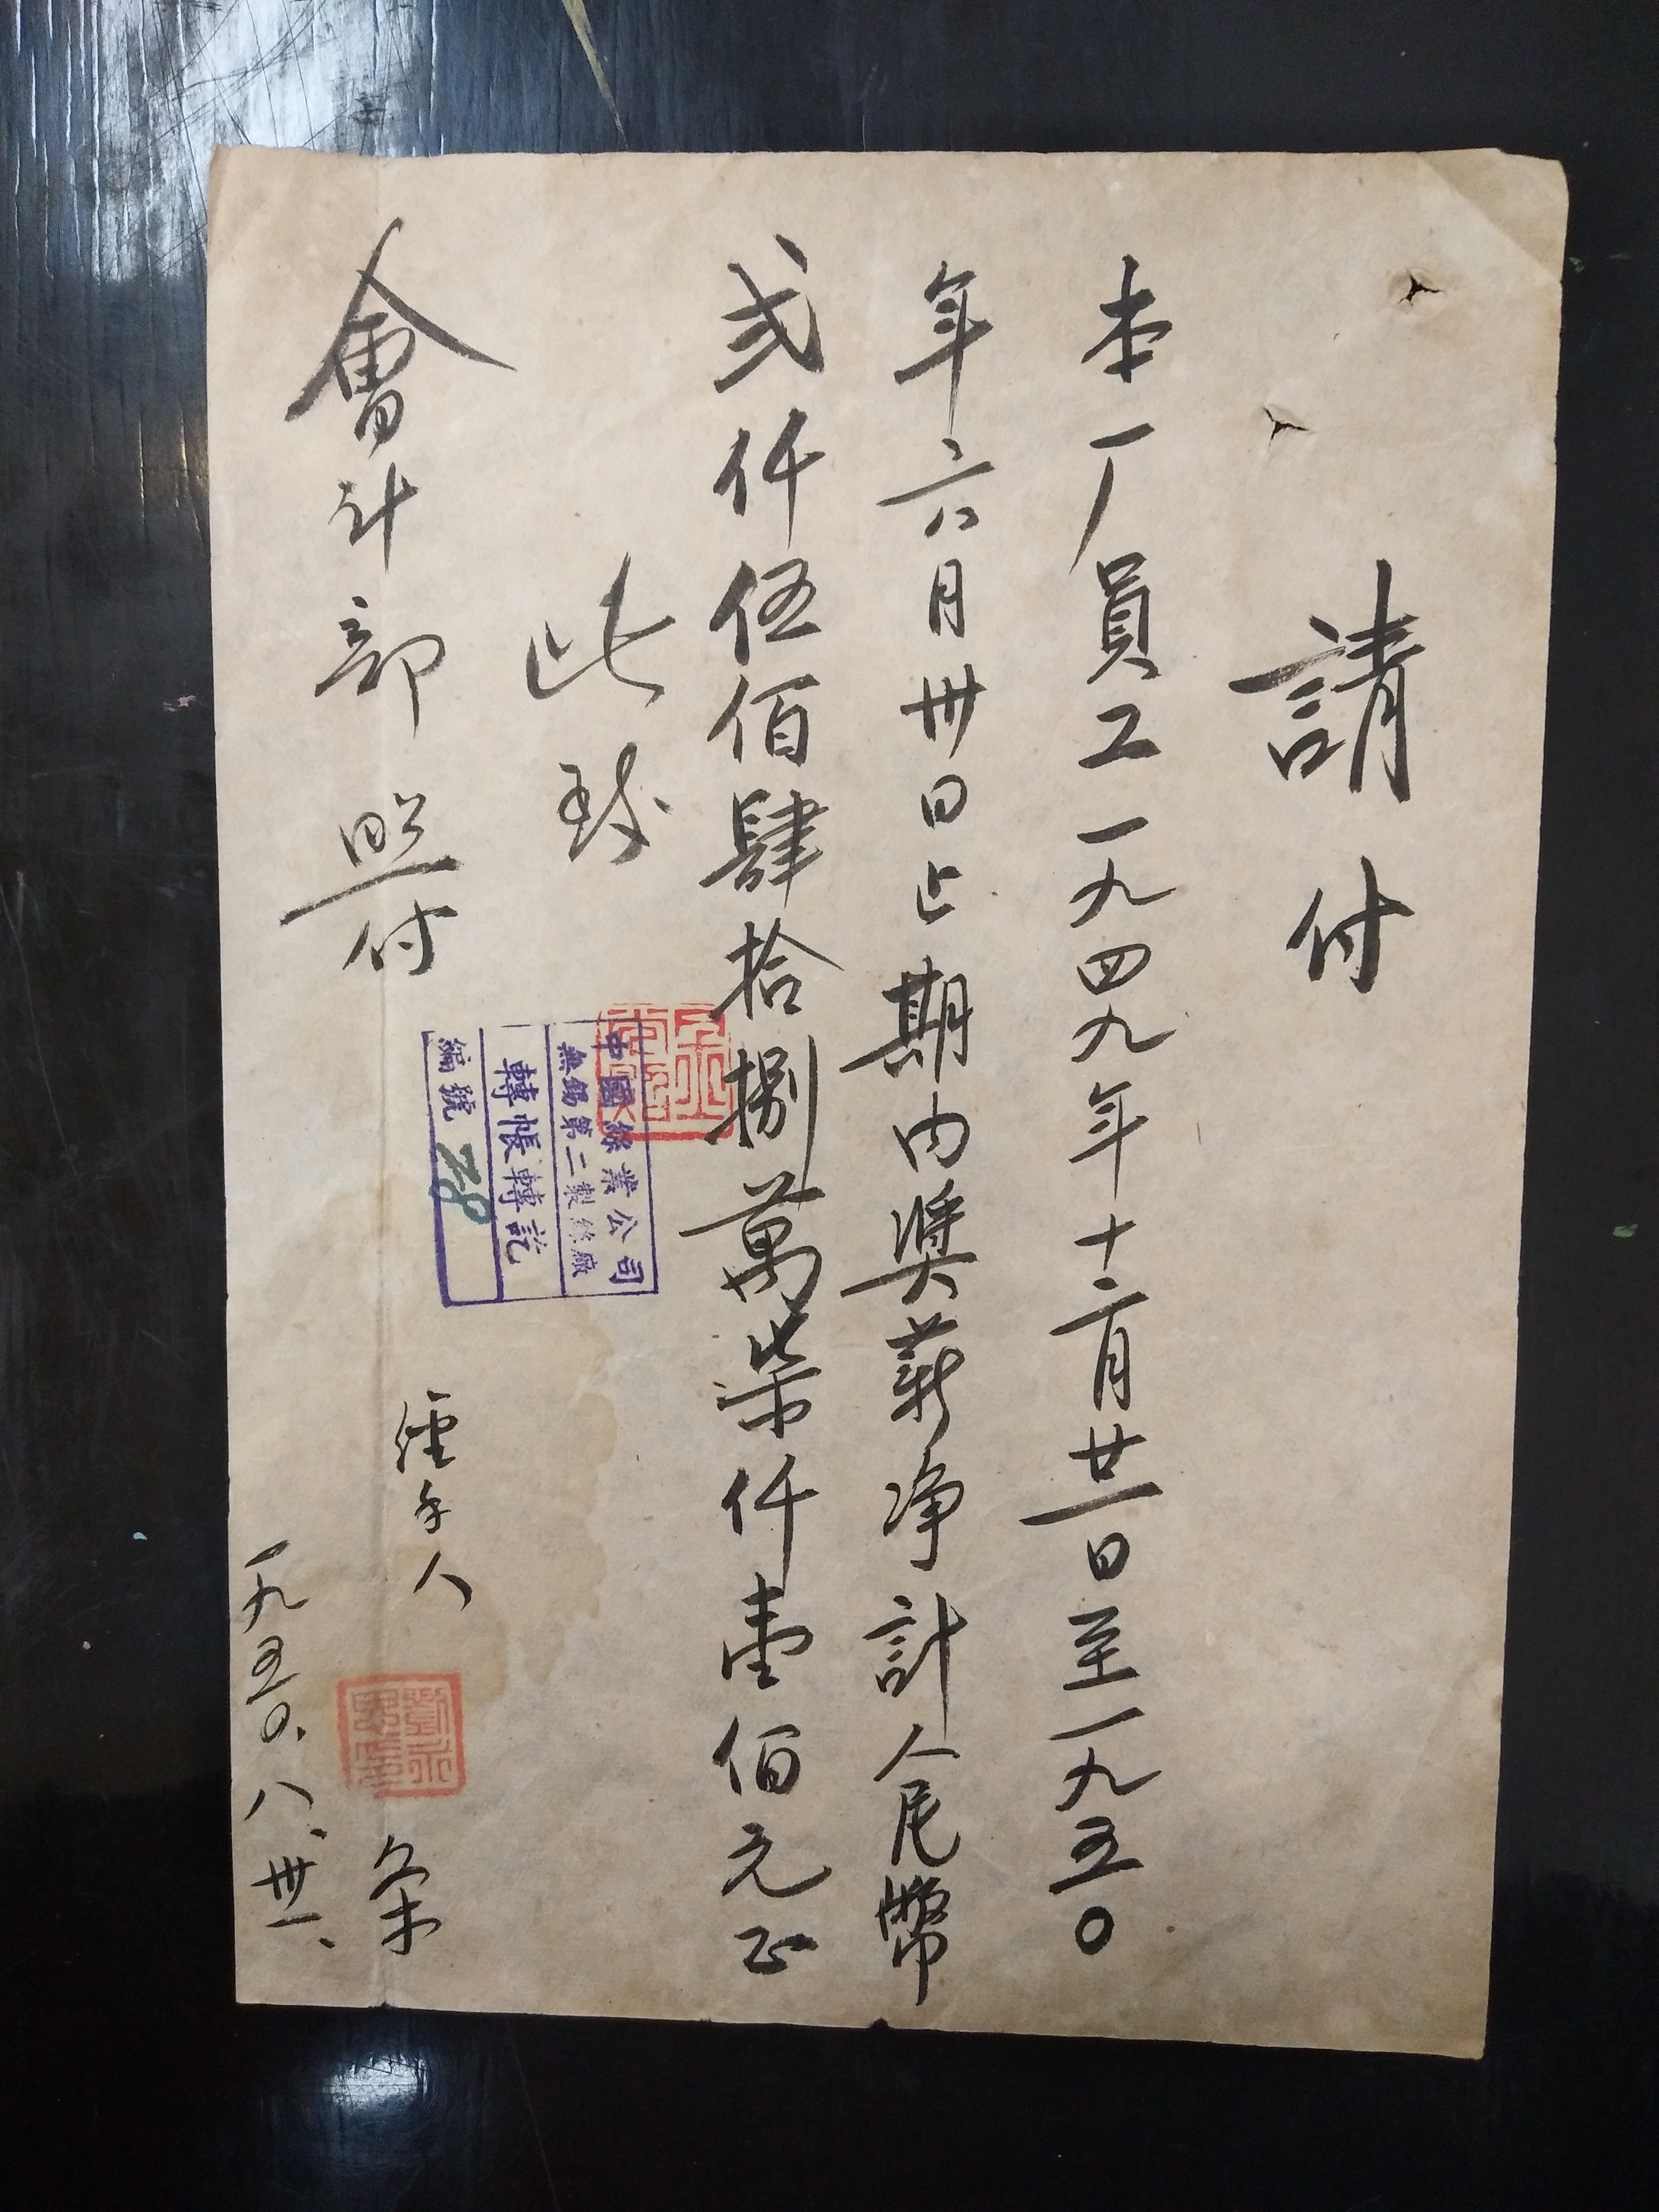 請付
本厂員工一九四九年十二月廿一日至一九五〇
年六月卅日止期内奬薪净計人民幣
弍仟伍佰肆拾捌萬柒仟壹佰元正
此致
會计部照付
中國絲業公司
無錫第二製絲廠
轉帳轉訖
編號 28
經手人
条
一九五〇.八.卅一.